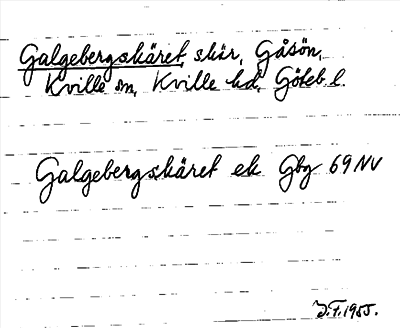 Galgebergskäret, skär, Gåsön,
Kville sn, Kville hd, Göteb l.
Galgebergskäret ek Gbg 69 NV
J.F. 1955.